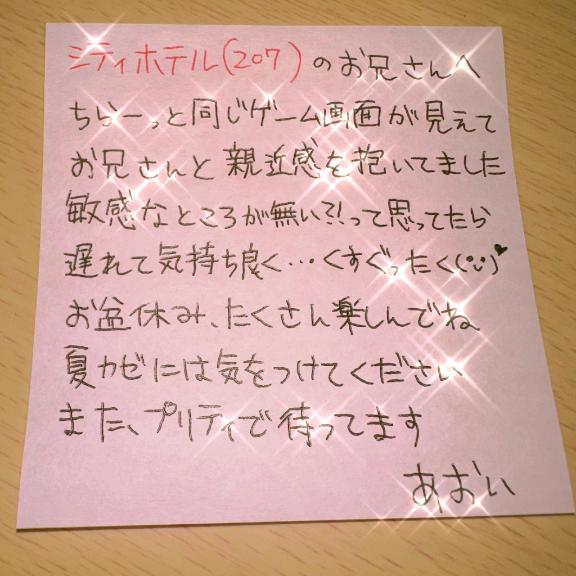 シティホテル(207)のお兄さんへ
ちらーっと同じゲーム画面が見えて
お兄さんと親近感を抱いてました
敏感なところが無い?!って思ってたら
遅れて気持ち良く…くすぐったく(:)♥
お盆休み、たくさん楽しんでね
夏カゼには気をつけてください
また、プリティで待ってます
あおい